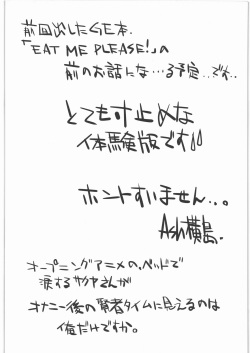 前回出したGE本.
「EAT ME PLEASE!」の
前のお話にな…る予定…です..
とても寸止めな
体験版です!!
ホントすいません...。
Ash横島.
オープニングアニメの、ベッドで
涙するサクヤさんが
オナニー後の賢者タイムに見えるのは
俺だけですか。